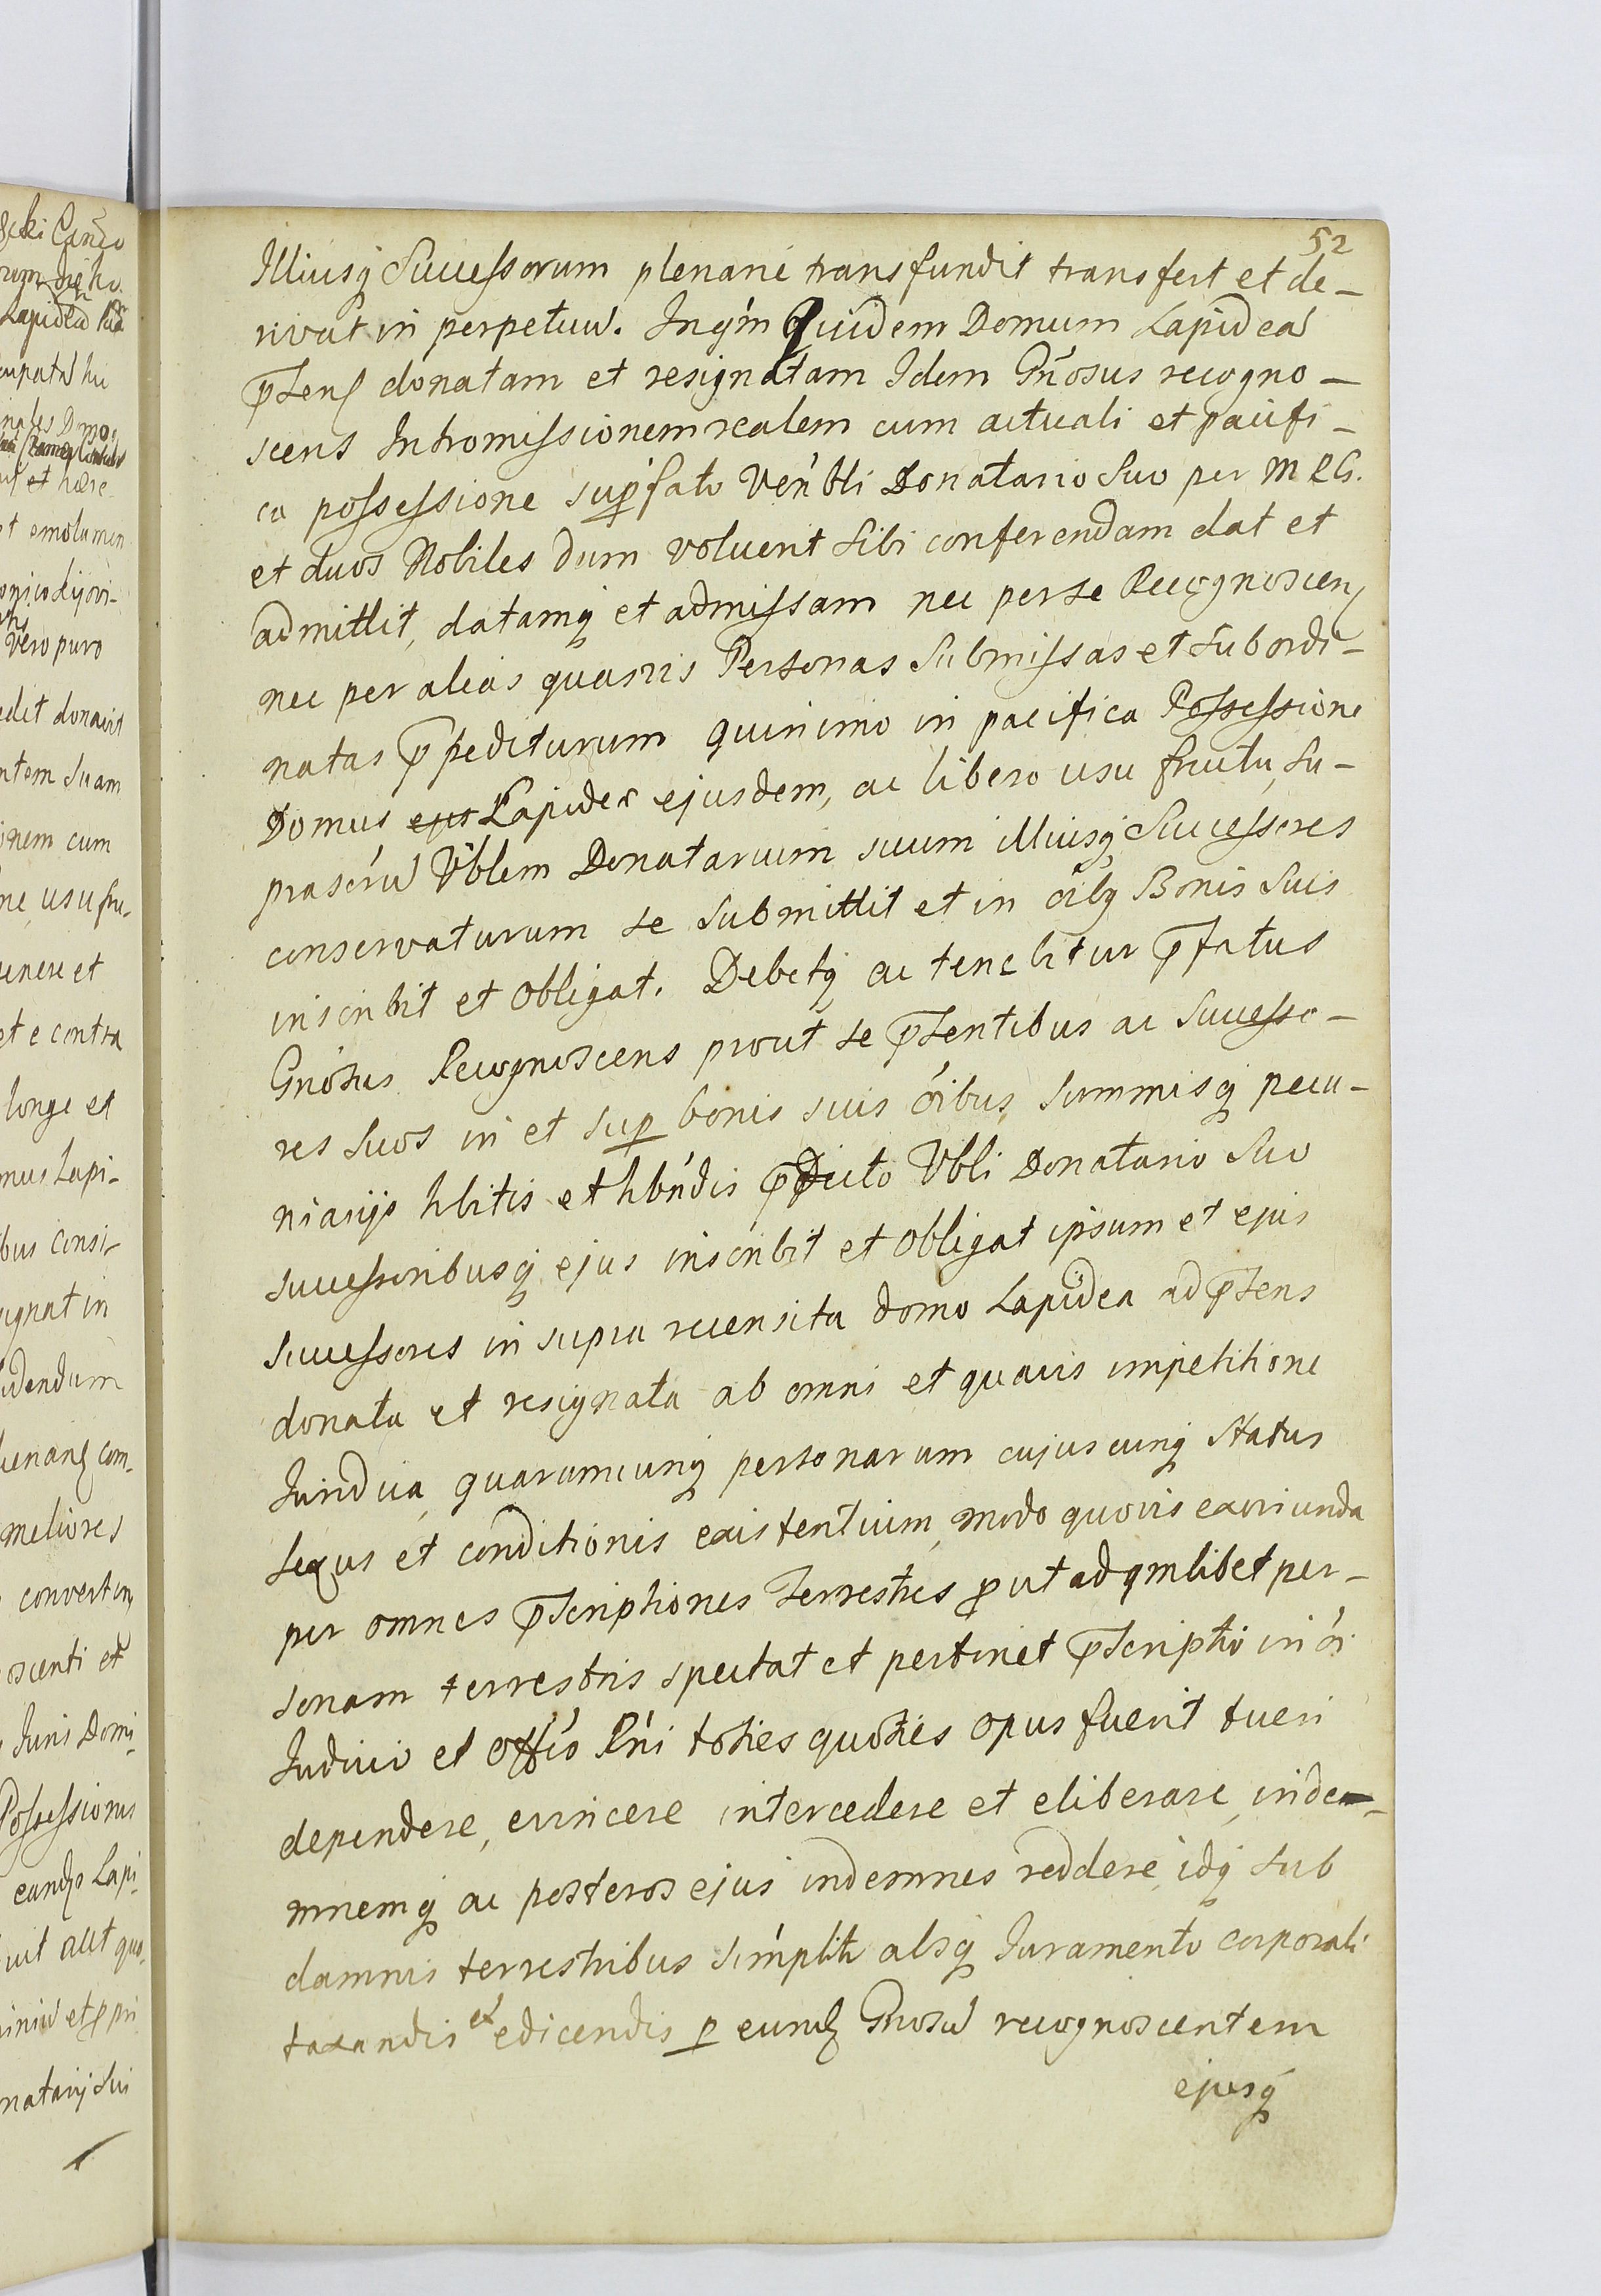 52
Illiusq́ Successorum plenarié transfundit transfert et de-
rivat in perpetuū. In qḿ Quidem Domum Lapideā
p̄sens donatam et resignatam Idem Gńosus recogno-
scens Intromissionem realem cum actuali et pacifi-
ca possessione supr̄fato Veńbli Donatario Suo per MRG.
et duos Nobiles dum voluerit sibi conferendam dat et
admittit, datamq́ et admissam nec per se Recognoscens
nec per alias quasvis Personas Submissas et Subordi-
natas p̄pediturum quinimo in pacifica Possessione
Domus ejus Lapideæ ejusdem, ac libero usu fructu, Su-
prascrū Vblem Donatarium suum illiusq́ Successores
conservaturum se Submittit et in oībq Bonis Suis
inscribit et Obligat. Debetq́ ac tenebitur p̄fatus
Gńosus Recognoscens prout se p̄sentibus ac Successo-
res Suos in et sup bonis suis oíbus, Summisq́ pecu-
niarijs hbitis et hbńdis p̄Dicto Vbli Donatario Suo
Successoribusq́ ejus inscribit et Obligat ipsum et ejus
Successores in supra recensita domo Lapidea ad p̄sens
donata et resignata ab omni et quavis impetitione
Juridica, quarumcunq́ personarum cujuscunq́ Status
Sexus et conditionis existentium, modo quovis exoriunda
per omnes p̄scriptiones Terrestres put ad qmlibet per-
sonam terrestris spectat et pertinet p̄scriptio in oí
Judicio et Offíó Rńi toties quoties opus fuerit tueri
dependere, evincere intercedere et eliberare, inde-
mnemq́ ac posteros ejus indemnes reddere, idq́ sub
damnis terrestribus simplitr absq́ Juramento corporali
taxandis et edicendis p eundē Gnosū recognoscentem
ejusq́